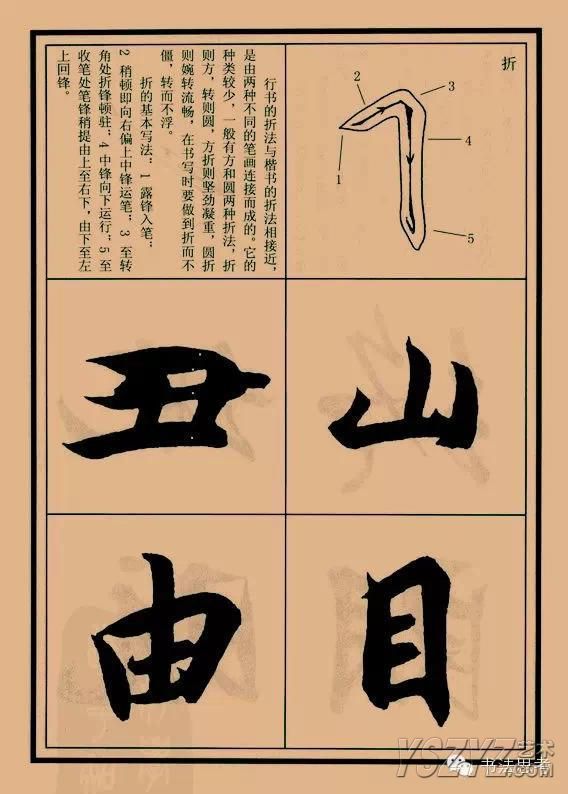 折
1
2
3
4
5
行书的折法与楷书的折法相接近，
是由两种不同的笔画连接而成的。它的
种类较少，一般有方和圆两种折法，折
则方，转则圆，方折则坚劲凝重，圆折
则婉转流畅，在书写时要做到折而不
僵，转而不浮。
折的基本写法：1 露锋入笔；
2 稍顿即向右偏上中锋运笔；3 至转
角处折锋顿驻；4 中锋向下运行；5 至
收笔处笔锋稍提由上至右下，由下至左
上回锋。
山
丑
目
由
书法思考